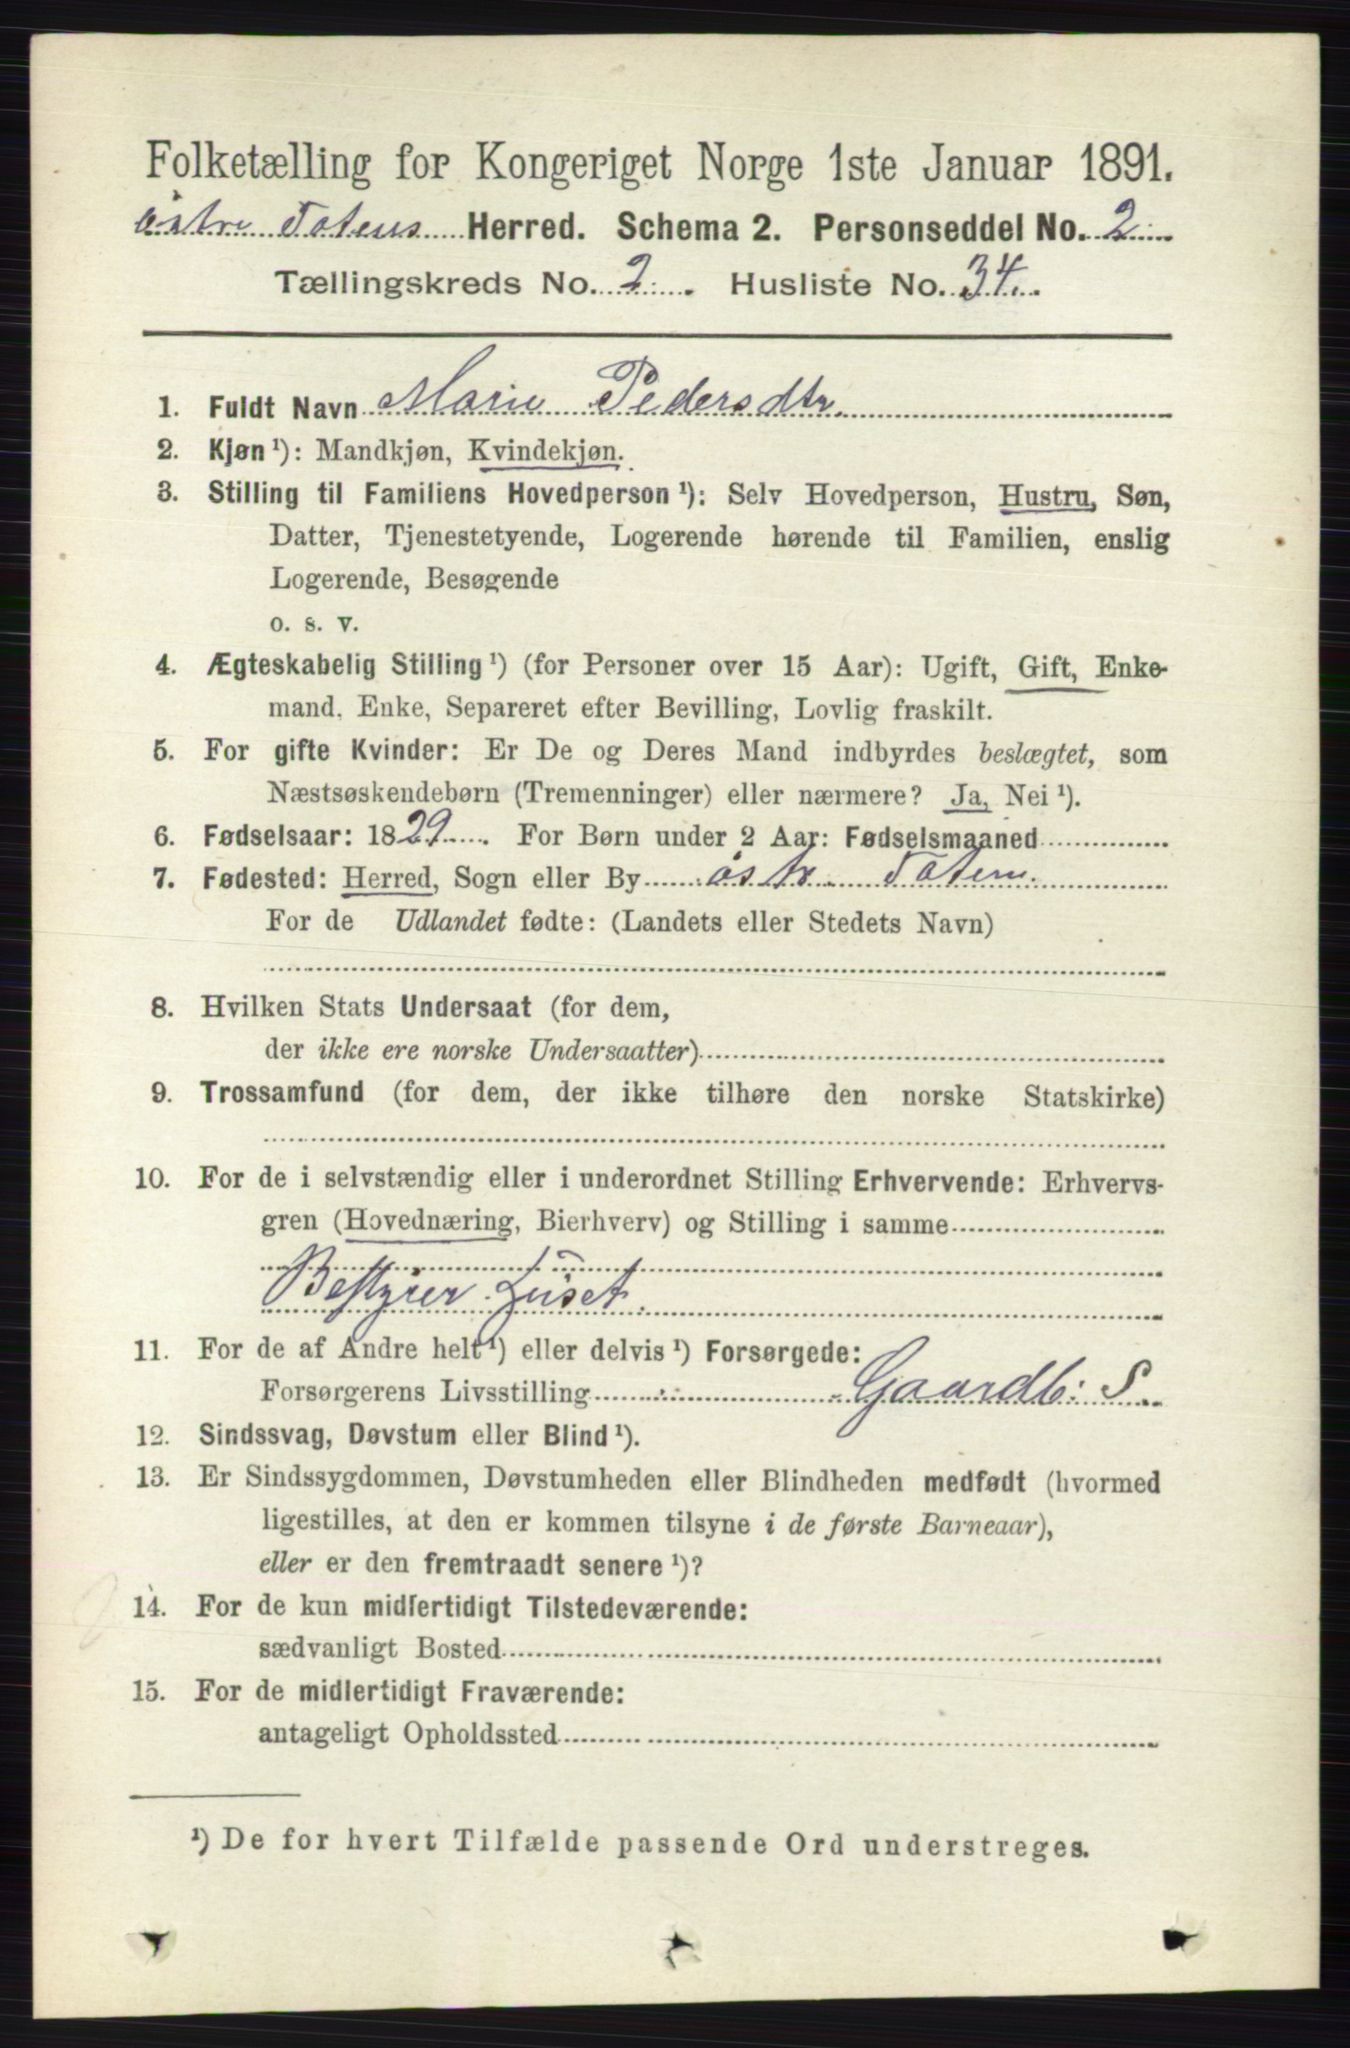 Folketælling for Kongeriget Norge 1ste Januar 1891.
östre Totens Herred. Schema 2. Personseddel No. 2
Tællingskreds No. 2. Husliste No. 34.
1. Fuldt Navn Marie Pedersdtr.
2. Kjøn ¹): Mandkjøn, Kvindekjøn.
3. Stilling til Familiens Hovedperson ¹): Selv Hovedperson, Hustru, Søn,
Datter, Tjenestetyende, Logerende hørende til Familien, enslig
Logerende, Besøgende
o. s. v.
4. Ægteskabelig Stilling ¹) (for Personer over 15 Aar): Ugift, Gift, Enke-
mand, Enke, Separeret efter Bevilling, Lovlig fraskilt.
5. For gifte Kvinder: Er De og Deres Mand indbyrdes beslægtet, som
Næstsøskendebørn (Tremenninger) eller nærmere? Ja, Nei ¹).
6. Fødselsaar: 1829. For Børn under 2 Aar: Fødselsmaaned
7. Fødested: Herred, Sogn eller By östr. Toten.
For de Udlandet fødte: (Landets eller Stedets Navn)
8. Hvilken Stats Undersaat (for dem,
der ikke ere norske Undersaatter)
9. Trossamfund (for dem, der ikke tilhøre den norske Statskirke)
10. For de i selvstændig eller i underordnet Stilling Erhvervende: Erhvervs-
gren (Hovednæring, Bierhverv) og Stilling i samme
Bestyrer huset.
11. For de af Andre helt ¹) eller delvis ¹) Forsørgede:
Forsørgerens Livsstilling Gaardb: S.
12. Sindssvag, Døvstum eller Blind ¹).
13. Er Sindssygdommen, Døvstumheden eller Blindheden medfødt (hvormed
ligestilles, at den er kommen tilsyne i de første Barneaar),
eller er den fremtraadt senere ¹)?
14. For de kun midlertidigt Tilstedeværende:
sædvanligt Bosted
15. For de midlertidigt Fraværende:
antageligt Opholdssted
¹) De for hvert Tilfælde passende Ord understreges.